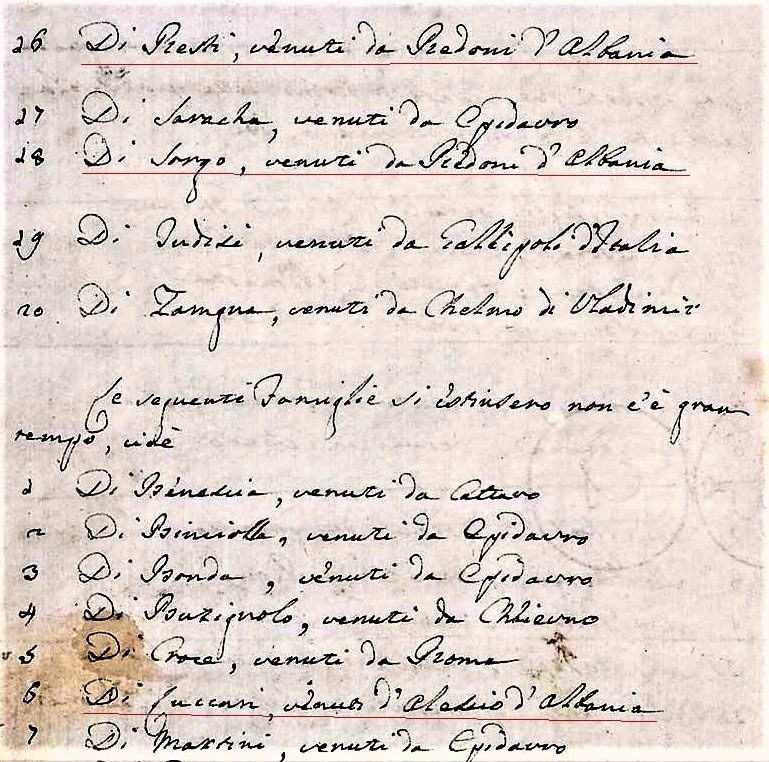 16 Di Resti, venuti da Redoni d'Albania
17 Di Saracha, venuti da Epidauro
18 Di Sorgo, venuti da Redoni d'Albania
19 Di Iudisi, venuti da Gallipoli d'Italia
20 Di Zamgna, venuti da Chelmo di Vladimir
Le seguenti Famiglie si estinsero non c'è gran
tempo, cioè
1 Di Benessia, venuti da Cattaro
2 Di Binciolla, venuti da Epidauro
3 Di Bonda, venuti da Epidauro
4 Di Buzignolo, venuti da Chlieuno
5 Di Croce, venuti da Roma
6 Di Luccari, venuti d'Alessio d'Albania
7 Di Martini, venuti da Epidauro